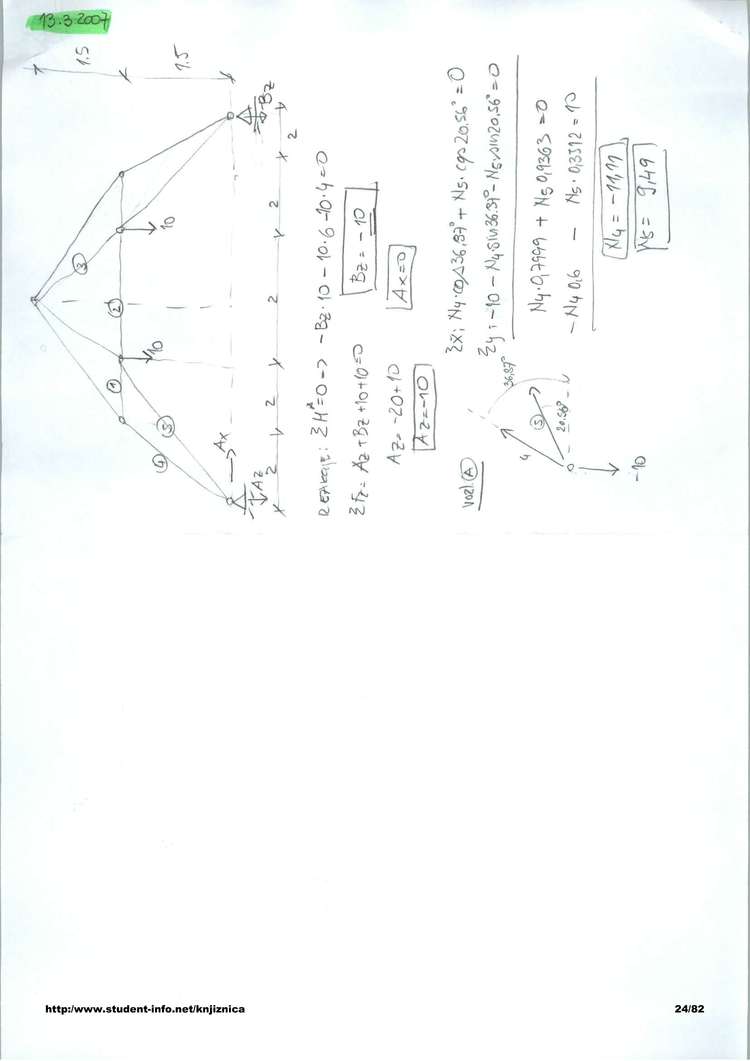 13.3.2007
1.5
1.5
3
2
1
4
5
10
10
Ax
Az
Bz
2
2
2
2
2
REAKCIJE: ΣM^A=0 -> -Bz·10 - 10·6 - 10·4=0
Bz = -10
ΣFz= Az+Bz+10+10=0
Ax=0
Az= -20+10
Az=-10
VOZL A
4
5
36,87°
20.56°
-10
Σx: N4·cos36,87° + N5·cos20,56°=0
Σy: -10 - N4·sin36.87° - N5·sin20,56°=0
N4·0,7999 + N5 0,9363 =0
-N4 0,6 - N5·0,3512 = 10
N4= -11,11
N5= 9,49
http:/www.student-info.net/knjiznica
24/82